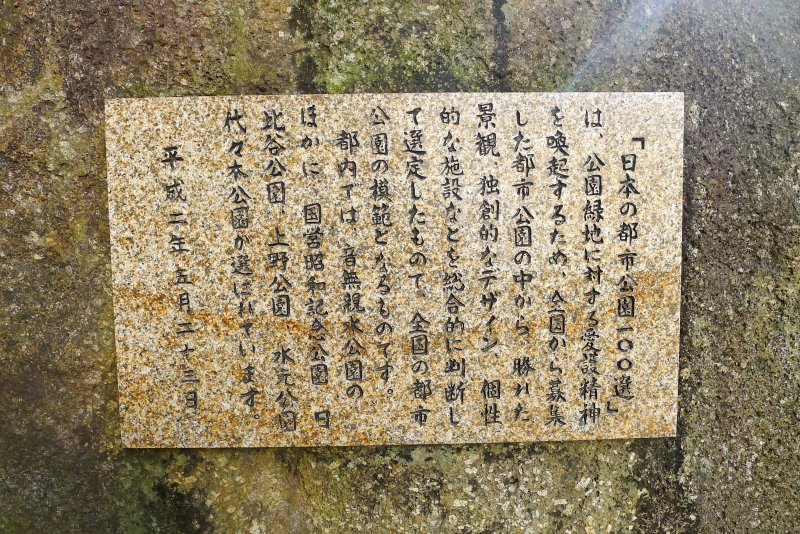 「日本の都市公園一〇〇選」
は、公園緑地に対する愛護精神
を喚起するため、全国から募集
した都市公園の中から、勝れた
景観、独創的なデザイン、個性
的な施設などを総合的に判断し
て選定したもので、全国の都市
公園の模範となるものです。
都内では、音無親水公園の
ほかに、国営昭和記念公園 日
比谷公園、上野公園 水元公園
代々木公園が選ばれています。
平成二年五月二十三日